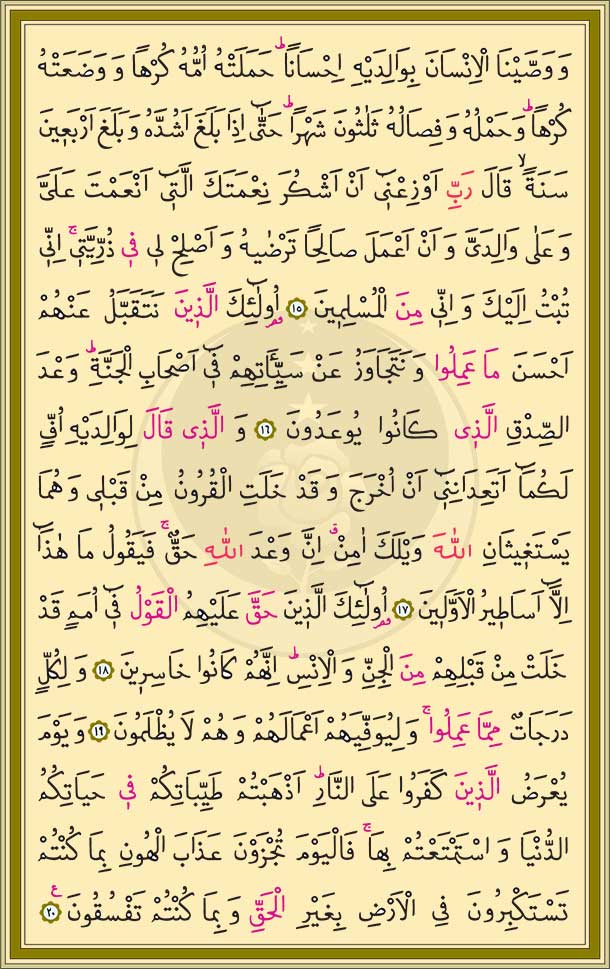 وَ وَصَّيْنَا الْاِنْسَانَ بِوَالِدَيْهِ اِحْسَانًاۜ حَمَلَتْهُ اُمُّهُ كُرْهًا وَ وَضَعَتْهُ
كُرْهًاۜ وَحَمْلُهُ وَ فِصَالُهُ ثَلٰثُونَ شَهْرًاۜ حَتّٰٓى اِذَا بَلَغَ اَشُدَّهُ وَ بَلَغَ اَرْبَعٖينَ
سَنَةًۙ قَالَ رَبِّ اَوْزِعْنٖٓى اَنْ اَشْكُرَ نِعْمَتَكَ الَّتٖٓى اَنْعَمْتَ عَلَىَّ
وَ عَلٰى وَالِدَىَّ وَ اَنْ اَعْمَلَ صَالِحًا تَرْضٰيهُ وَ اَصْلِحْ لٖى فٖى ذُرِّيَّتٖىۚ اِنّٖى
تُبْتُ اِلَيْكَ وَ اِنّٖى مِنَ الْمُسْلِمٖينَ ﴿١٥﴾ اُو۬لٰٓئِكَ الَّذٖينَ نَتَقَبَّلُ عَنْهُمْ
اَحْسَنَ مَا عَمِلُوا وَ نَتَجَاوَزُ عَنْ سَيِّـَٔاتِهِمْ فٖٓى اَصْحَابِ الْجَنَّةِۜ وَعْدَ
الصِّدْقِ الَّذٖى كَانُوا يُوعَدُونَ ﴿١٦﴾ وَ الَّذٖى قَالَ لِوَالِدَيْهِ اُفٍّ
لَكُمَٓا اَتَعِدَانِنٖٓى اَنْ اُخْرَجَ وَ قَدْ خَلَتِ الْقُرُونُ مِنْ قَبْلٖى وَ هُمَا
يَسْتَغٖيثَانِ اللّٰهَ وَيْلَكَ اٰمِنْۗ اِنَّ وَعْدَ اللّٰهِ حَقٌّۚ فَيَقُولُ مَا هٰذَٓا
اِلَّٓا اَسَاطٖيرُ الْاَوَّلٖينَ ﴿١٧﴾ اُو۬لٰٓئِكَ الَّذٖينَ حَقَّ عَلَيْهِمُ الْقَوْلُ فٖٓى اُمَمٍ قَدْ
خَلَتْ مِنْ قَبْلِهِمْ مِنَ الْجِنِّ وَ الْاِنْسِۜ اِنَّهُمْ كَانُوا خَاسِرٖينَ ﴿١٨﴾ وَ لِكُلٍّ
دَرَجَاتٌ مِمَّا عَمِلُواۚ وَ لِيُوَفِّيَهُمْ اَعْمَالَهُمْ وَ هُمْ لَا يُظْلَمُونَ ﴿١٩﴾ وَ يَوْمَ
يُعْرَضُ الَّذٖينَ كَفَرُوا عَلَى النَّارِۜ اَذْهَبْتُمْ طَيِّبَاتِكُمْ فٖى حَيَاتِكُمُ
الدُّنْيَا وَ اسْتَمْتَعْتُمْ بِهَاۚ فَالْيَوْمَ تُجْزَوْنَ عَذَابَ الْهُونِ بِمَا كُنْتُمْ
تَسْتَكْبِرُونَ فِى الْاَرْضِ بِغَيْرِ الْحَقِّ وَ بِمَا كُنْتُمْ تَفْسُقُونَ ﴿٢٠﴾ ع